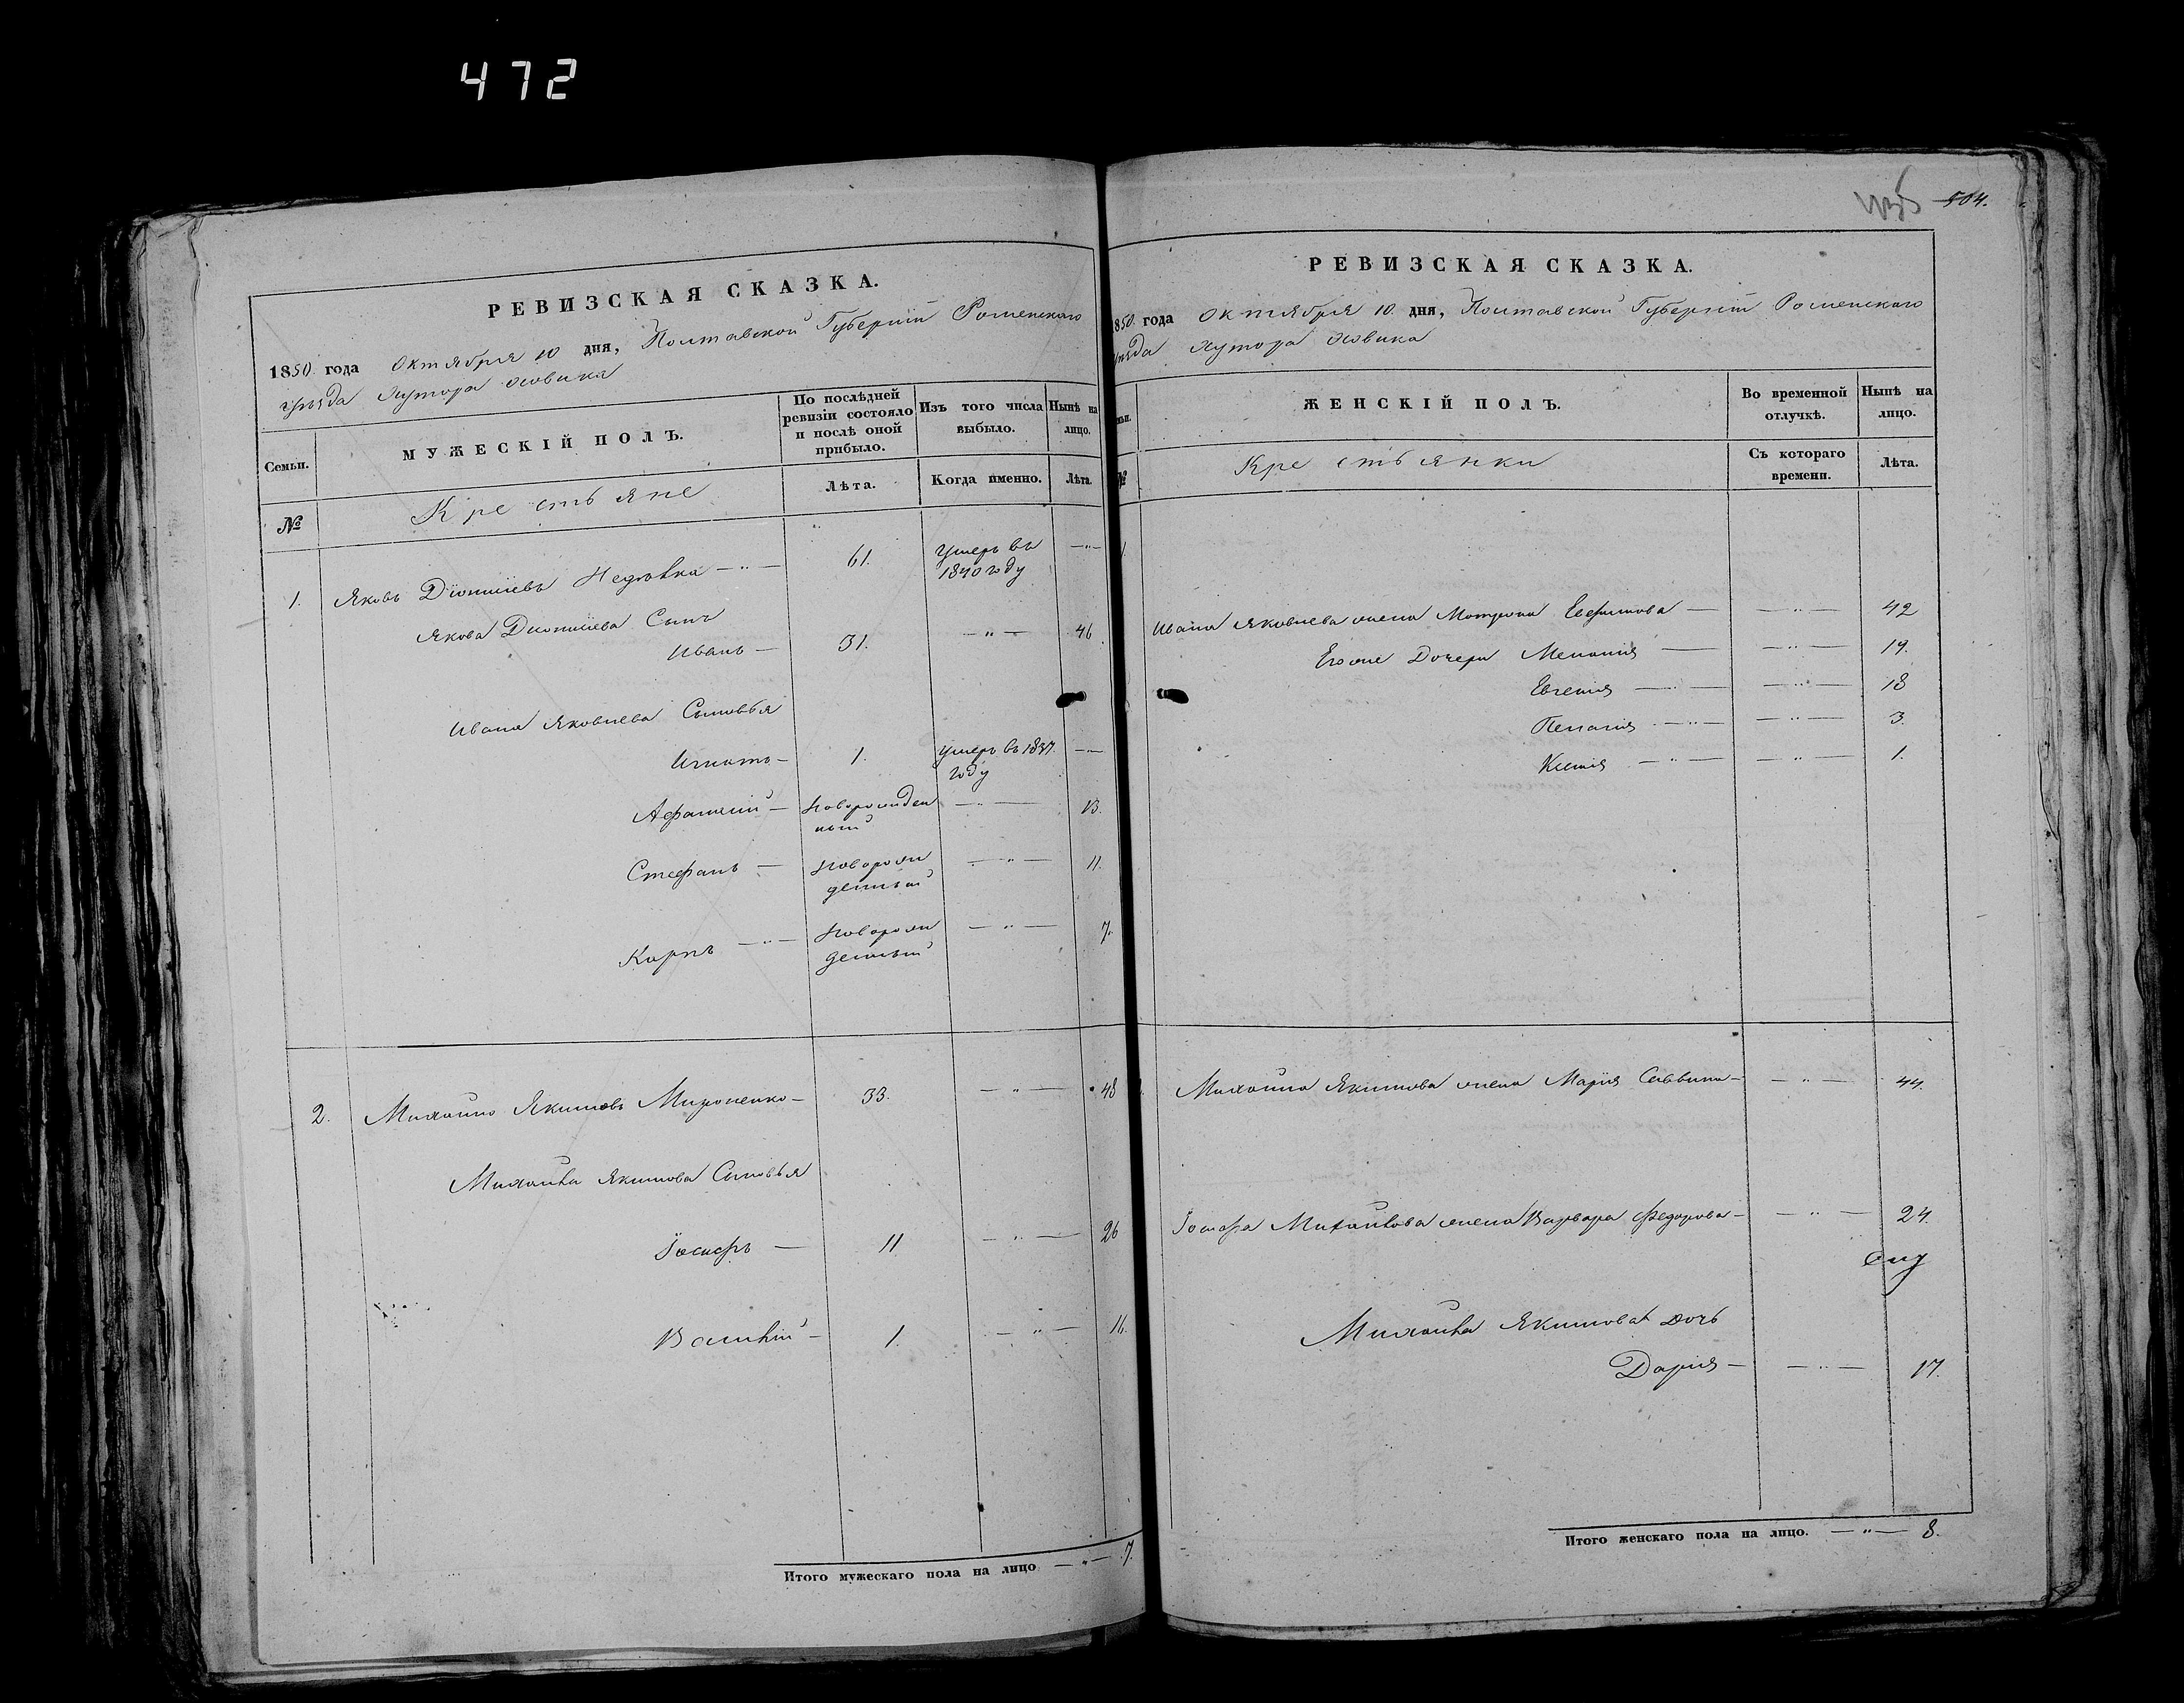 472
504.
РЕВИЗСКАЯ СКАЗКА.
1850 года Октября 10 дня, Полтавской Губернiи Роменского
уѣзда Хутора
Семьи.
МУЖЕСКIЙ ПОЛЪ.
По послѣдней ревизiи состояло и послѣ оной прибыло.
Изъ того числа выбыло.
Нынѣ на лицо.
№
Крестьяне
Лѣта.
Когда именно.
Лѣта.
1. Яковъ Дiонисiевъ —"— 61. Умеръ въ 1840 году —"—
Якова Дионисiева Сынъ
Иванъ — 31. —"— 46
Ивана Яковлева Сыновья
Игнатъ — 1. Умеръ въ 1837 году —"—
Афанасiй — Новорожденный —"— 13.
Стефанъ — Новорожденный —"— 11.
Карпъ —"— Новорожденный —"— 7.
2. Михайло Якимовъ Мироненко — 33. —"— 48
Михайла Якимова Сыновья
Iосифъ — 11 —"— 26
Василiй — 1. —"— 16.
Итого мужескаго пола на лицо —"— 7.
РЕВИЗСКАЯ СКАЗКА.
1850 года Октября 10 дня, Полтавской Губернiи Роменского
уѣзда Хутора
ЖЕНСКIЙ ПОЛЪ.
Во временной отлучкѣ.
Нынѣ на лицо.
№
Крестьянки
Съ котораго времени.
Лѣта.
Ивана Яковлева жена Матрона Евфимова — —"— 42
Егоже Дочери Меланiя — —"— 19.
Евгенiя —"— —"— 18
Пелагiя —"— —"— 3.
Ксенiя —"— —"— 1.
Михайла Якимова жена Марiя Саввина — —"— 44.
Iосифа Михайлова жена Варвара Федорова — —"— 24.
Михайла Якимова дочь
Дарiя — —"— 17.
Итого женскаго пола на лицо. —"— 8.